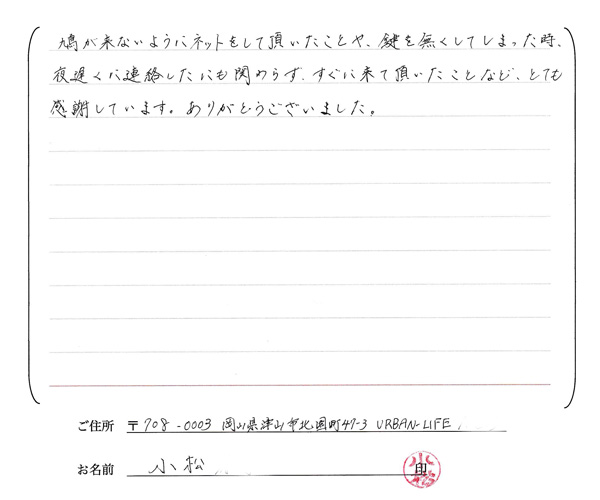 鳩が来ないようにネットをして頂いたことや、鍵を無くしてしまった時、
夜遅くに連絡したにも関わらず、すぐに来て頂いたことなど、とても
感謝しています。ありがとうございました。
ご住所 〒708-0003 岡山県津山市北園町47-3 URBAN-LIFE
お名前 小松 印